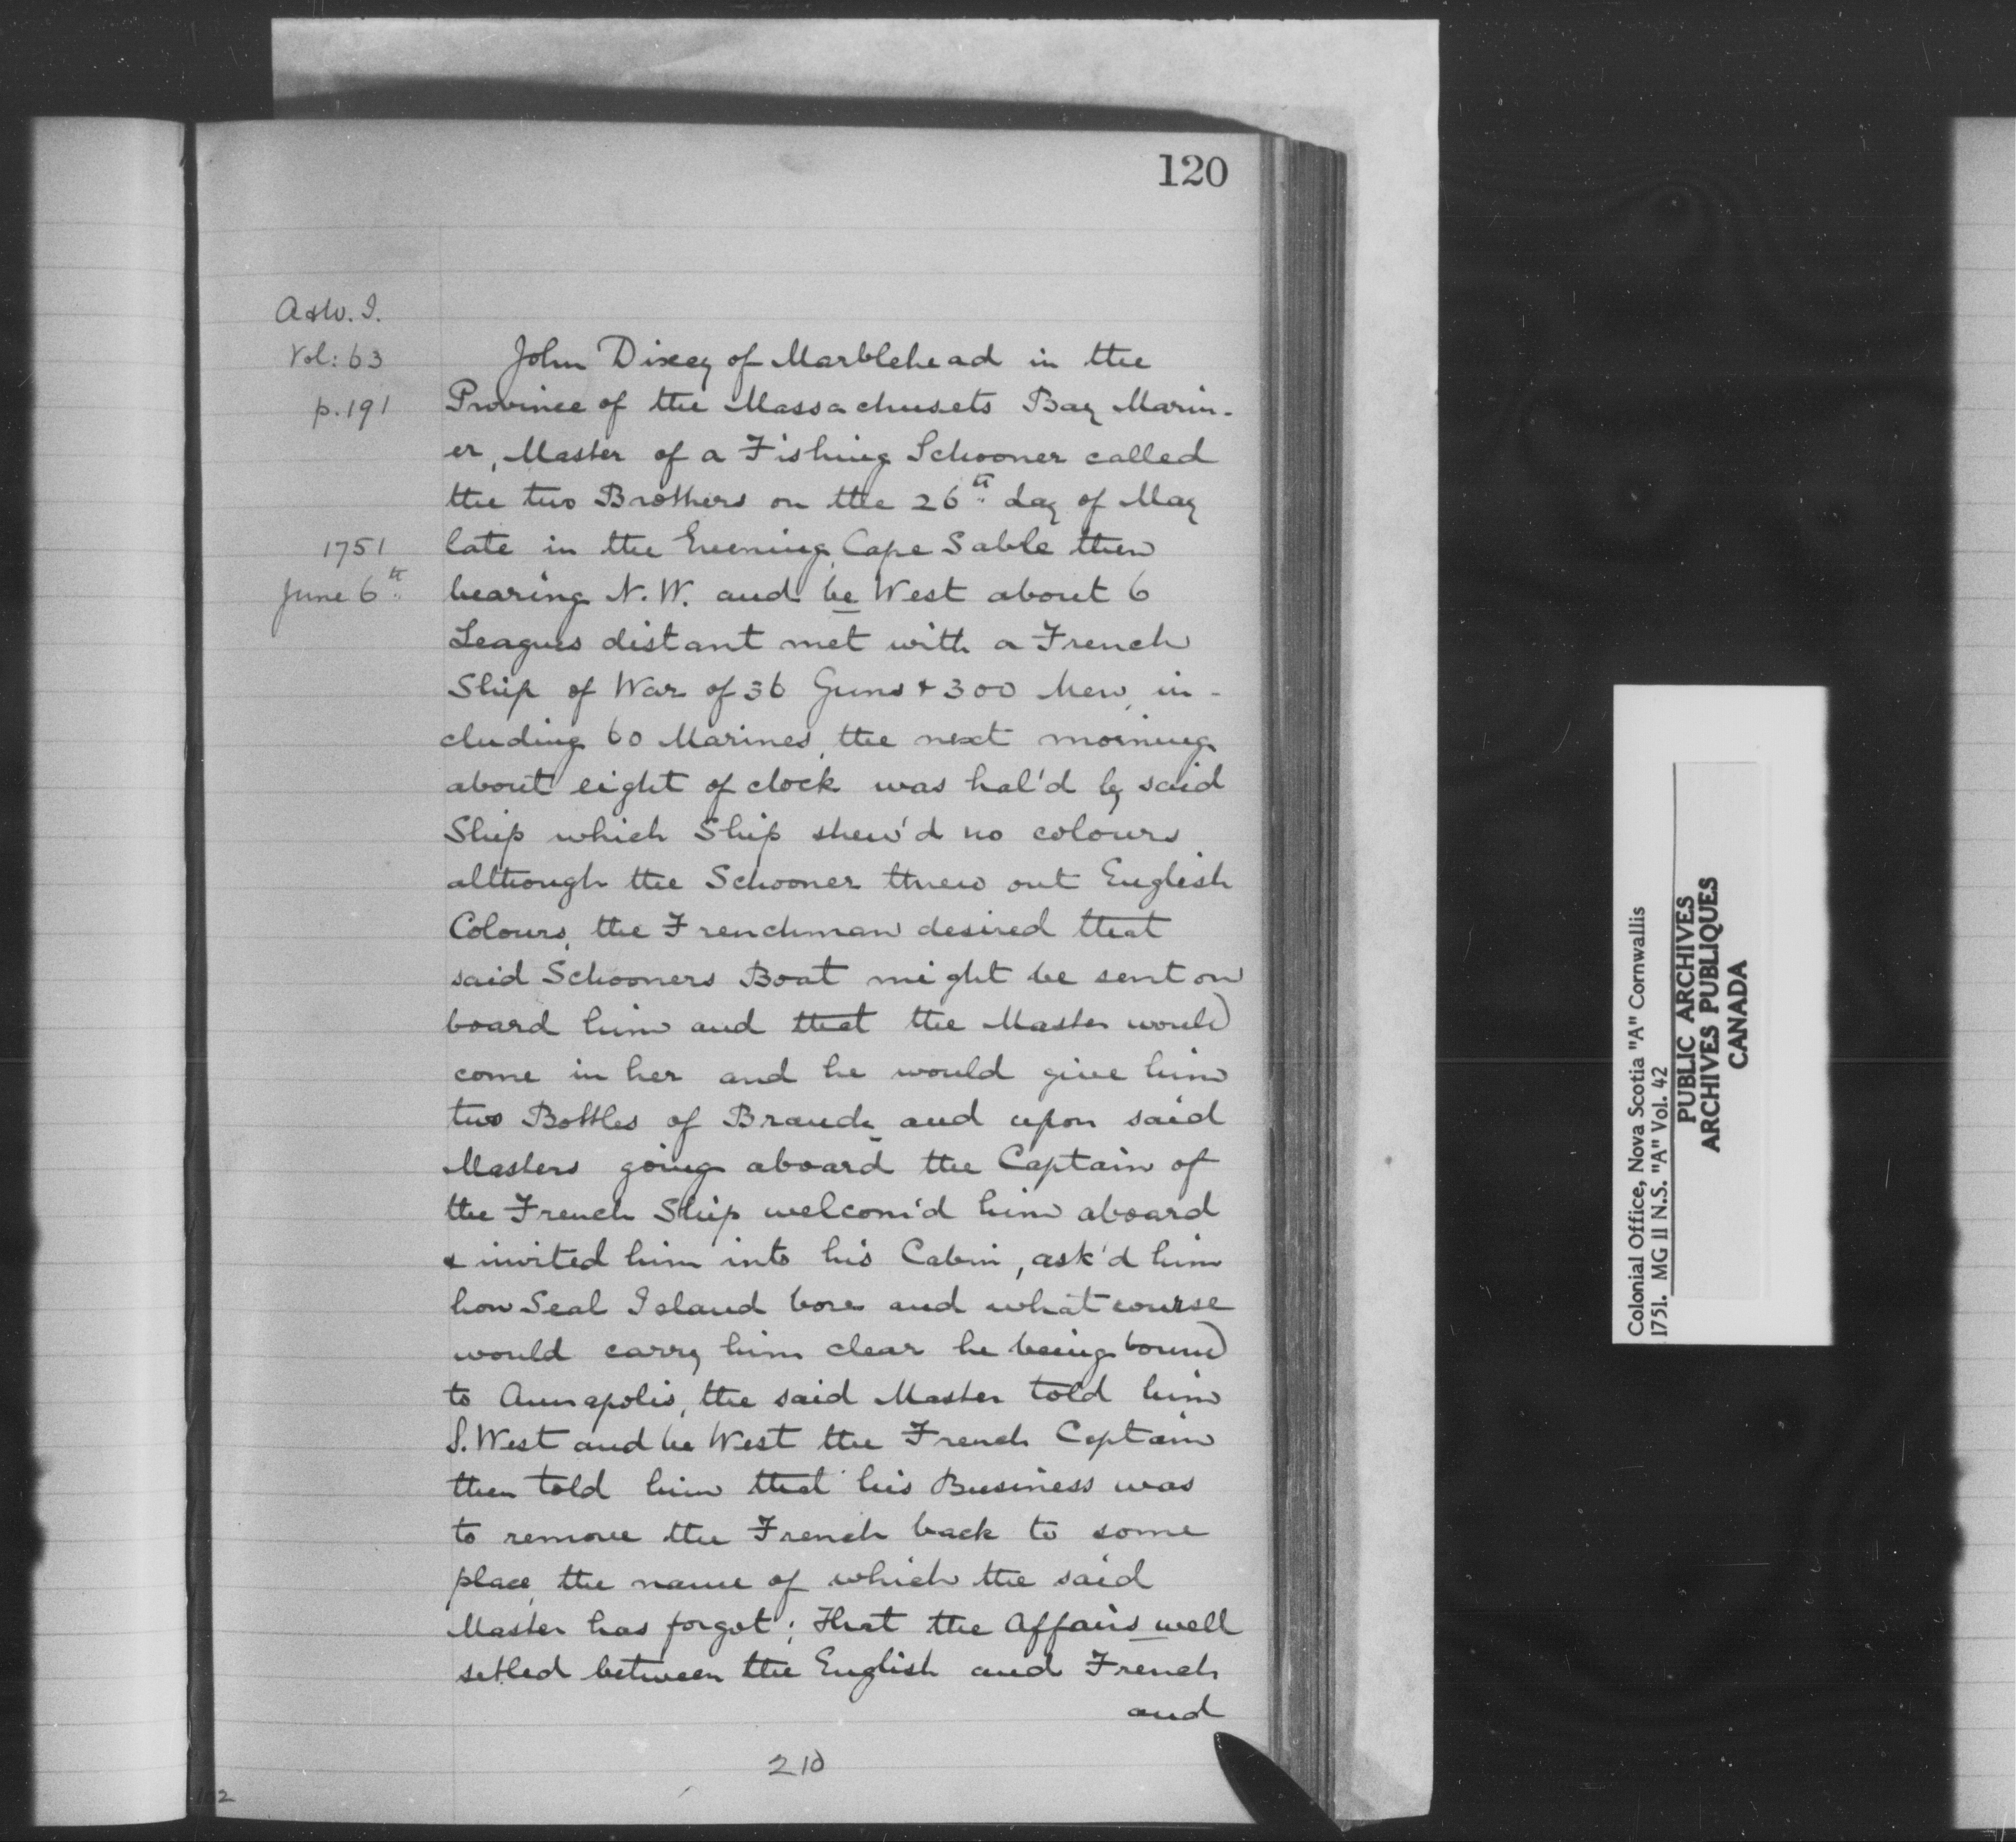 120
A & W. I.
Vol: 63
p. 191
1751
June 6th
John Dixey of Marblehead in the
Province of the Massachusets Bay Marin-
er, Master of a Fishing Schooner called
the two Brothers on the 26th day of May
late in the Evening, Cape Sable then
bearing N. W. and be West about 6
Leagues distant met with a French
Ship of War of 36 Guns & 300 Men, in-
cluding 60 Marines, the next morning
about eight of clock was hal'd by said
Ship which Ship shew'd no colours
although the Schooner threw out English
Colours, the Frenchman desired that
said Schooners Boat might be sent on
board him and that the Master would
come in her and he would give him
two Bottles of Brandy and upon said
Masters going aboard the Captain of
the French Ship welcom'd him aboard
& invited him into his Cabin, ask'd him
how Seal Island bore and what course
would carry him clear he being bound
to Annapolis, the said Master told him
S. West and be West the French Captain
then told him that his Business was
to remove the French back to some
place, the name of which the said
Master has forgot; That the Affairs well
setled between the English and French
and
210
102
Colonial Office, Nova Scotia "A" Cornwallis
1751. MG 11 N.S. "A" Vol. 42
PUBLIC ARCHIVES
ARCHIVES PUBLIQUES
CANADA